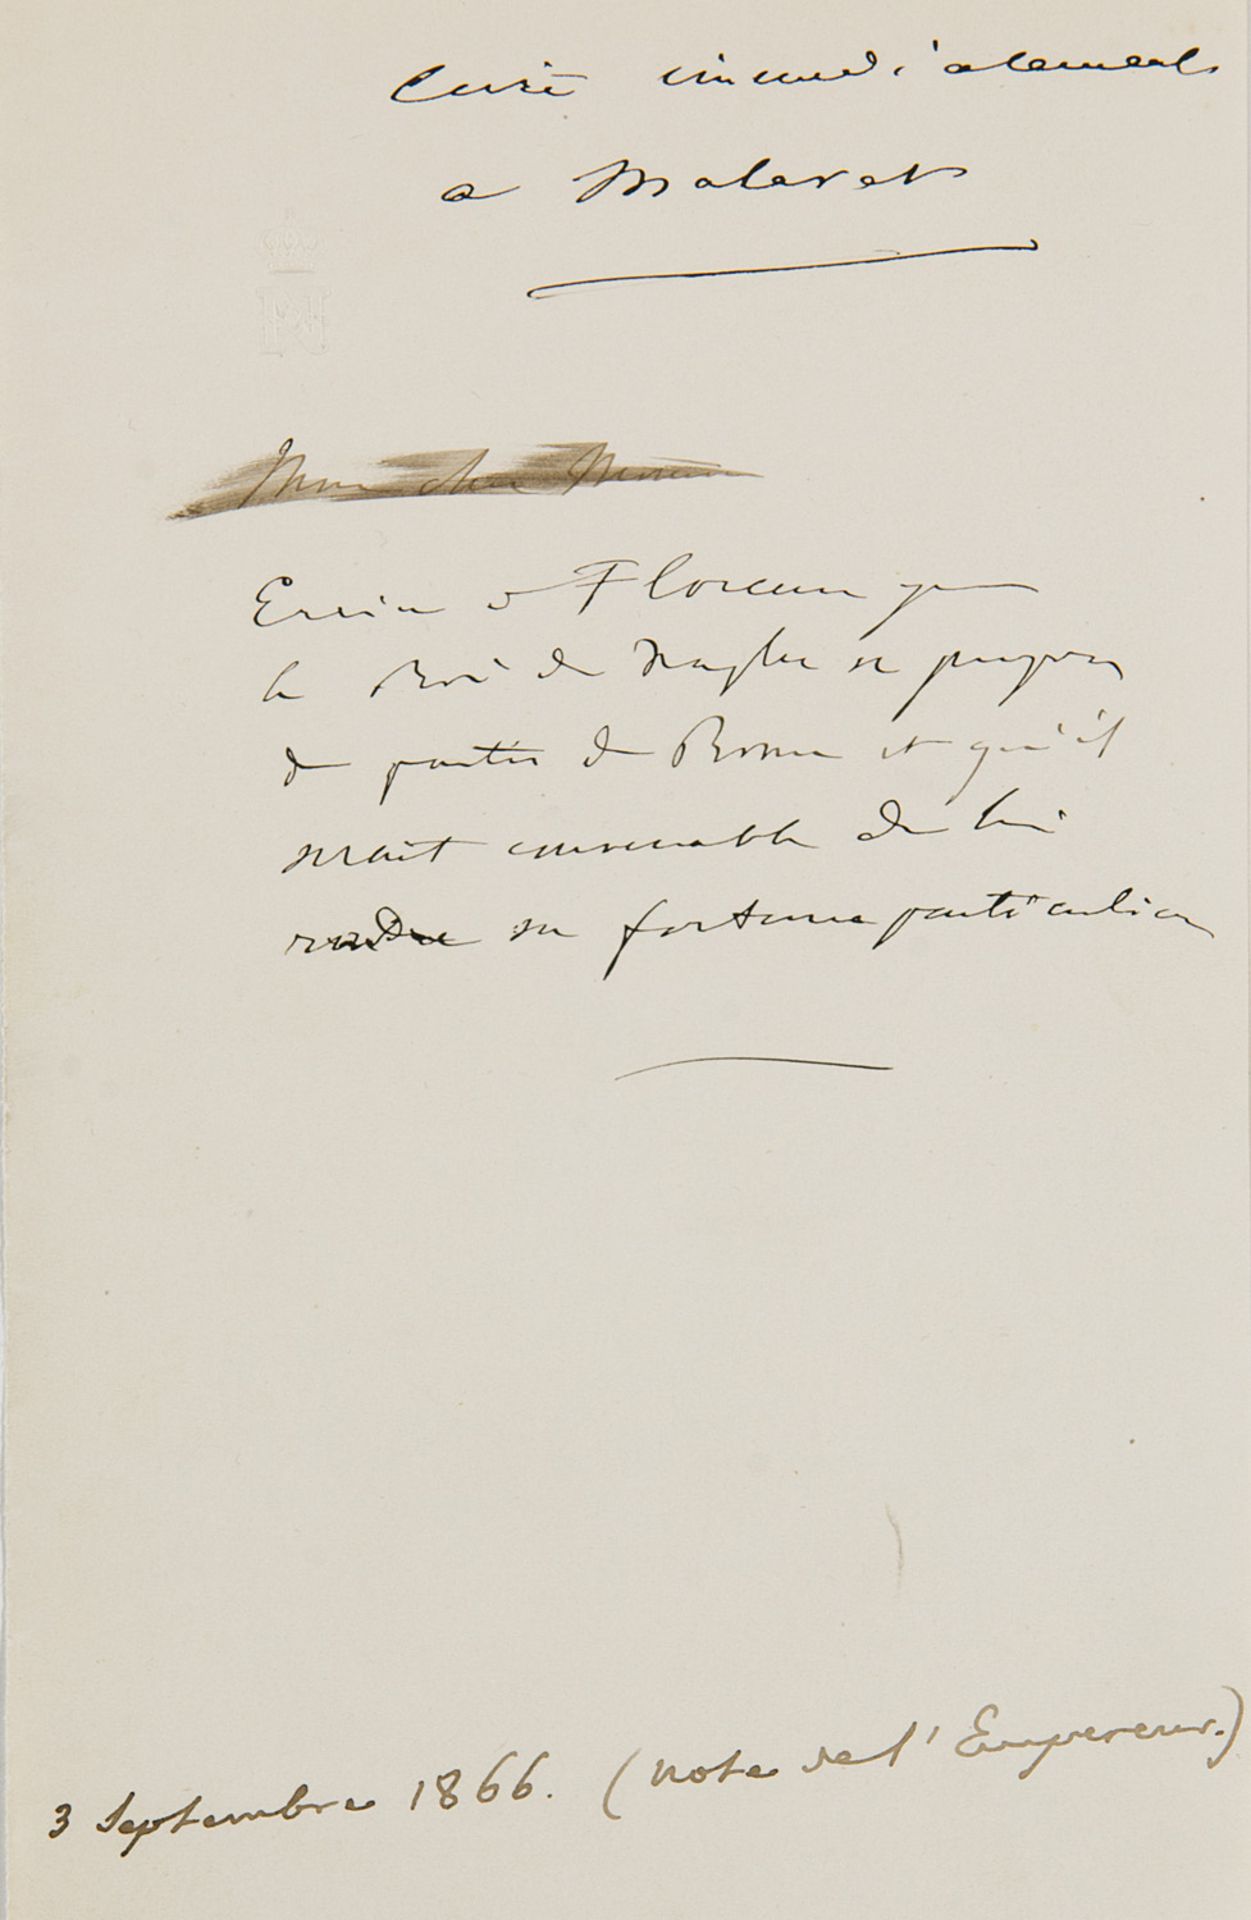 Ecrire immediatement
a Malaret
Mon cher
Ecrire à Florence que
le Roi de Naples se propose
de partir de Rome et qu'il
serait convenable de lui
rendre sa fortune particulière
3 Septembre 1866. (note de l'Empereur.)